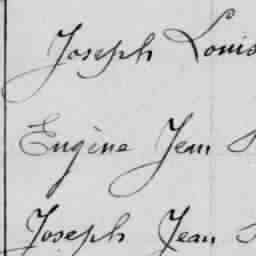 Joseph Louis
Eugène Jean
Joseph Jean